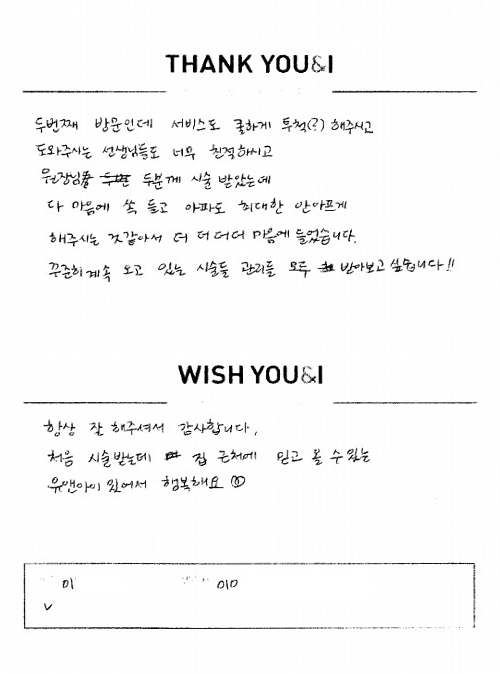 THANK YOU&I
두번째 방문인데 서비스도 쿨하게 투척(?) 해주시고
도와주시는 선생님들도 너무 친절하시고
원장님 두분께 시술 받았는데
다 마음에 쏙 들고 아파도 최대한 안아프게
해주시는 것같아서 더 더 더더 마음에 들었습니다.
꾸준히 계속 오고 있는 시술들 관리들 모두 받아보고 싶습니다!!
WISH YOU&I
항상 잘 해주셔서 감사합니다.
처음 시술받는데 집 근처에 믿고 올 수 있는
유앤아이 있어서 행복해요
이
010